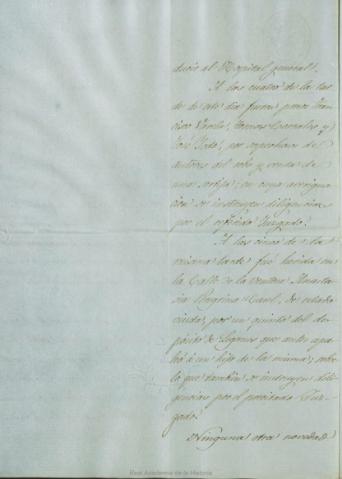 ducio al Hospital general.
A las cuatro de la tar
de de este dia fueron presos Fran
cisco Varela, Tomas Gonzalez y
José Soto, por sospechosos de
autores del robo y venta de
una sortija; en cuya averigua
cion se instruyen diligencias
por el referido Juzgado.
A las cinco de la
misma tarde fué herida en
la Calle de la Ventosa Anasta
sia Regina Canl, de estado
viuda, por un quinto del de
pósito de Leganes que antes apa
leó á un hijo de la misma; sobre
lo que tambien se instruyen dili
gencias por el precitado Juz
gado.
Ninguna otra novedad
Real Academia de la Historia